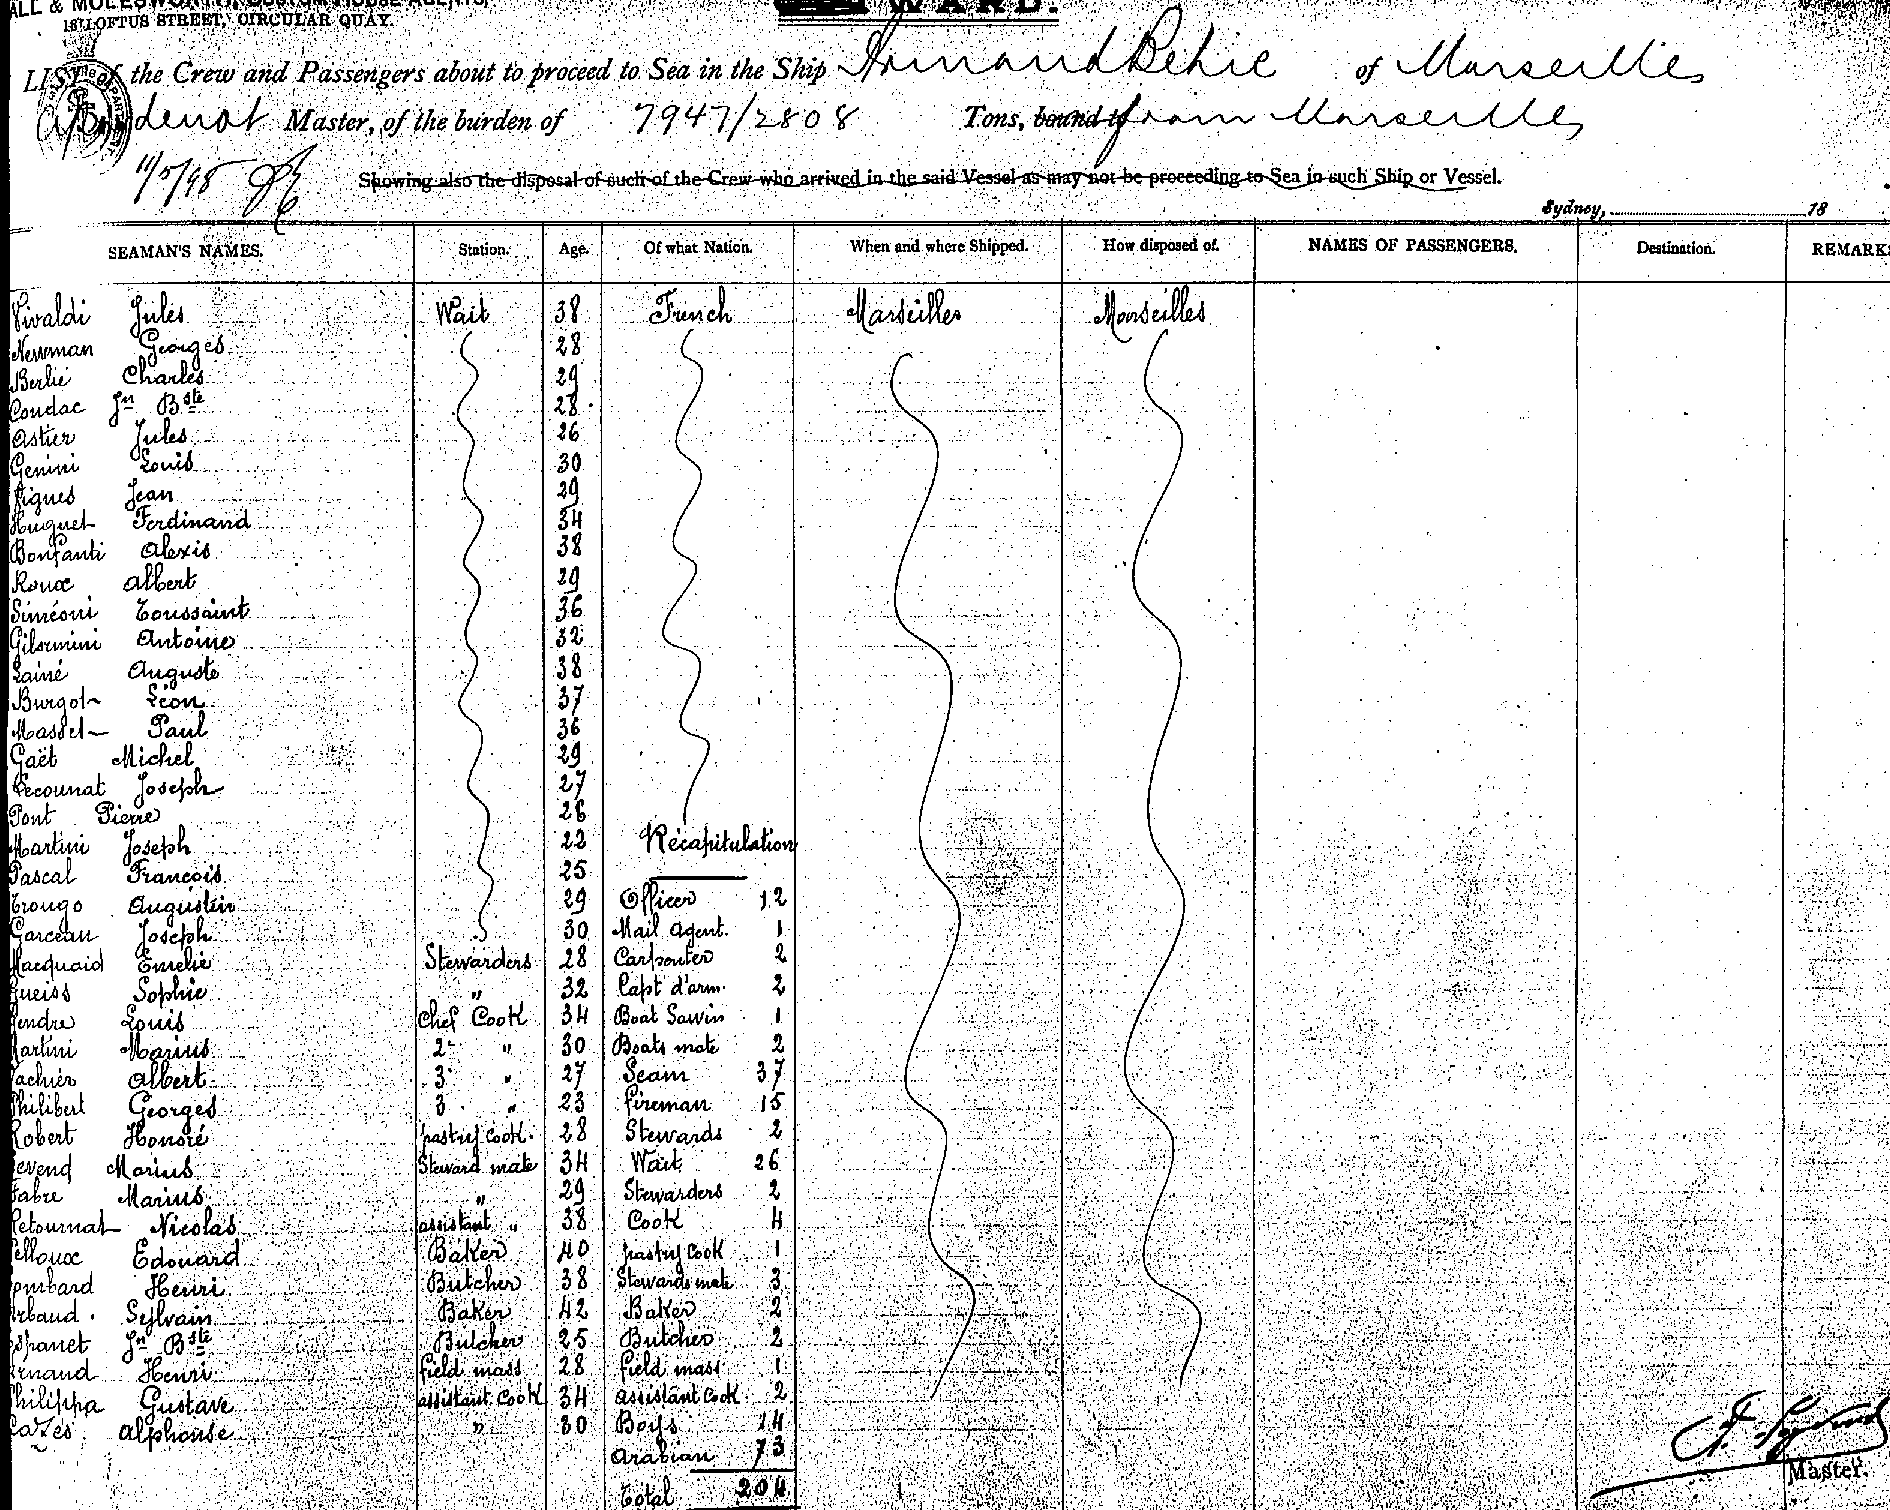 ALL & MOLESWORTH, CUSTOM HOUSE AGENTS,
18 LOFTUS STREET, CIRCULAR QUAY.
WARD.
LIST of the Crew and Passengers about to proceed to Sea in the Ship Armand Behic of Marseilles
denot Master, of the burden of 7947/2808 Tons, bound to from Marseilles
11/5/98
Showing also the disposal of such of the Crew who arrived in the said Vessel as may not be proceeding to Sea in such Ship or Vessel.
Sydney, 18
SEAMAN'S NAMES. Station. Age. Of what Nation. When and where Shipped. How disposed of. NAMES OF PASSENGERS. Destination. REMARKS
Vivaldi Jules Wait 38 French Marseilles Marseilles
Newman Georges 28
Berlié Charles 29
Condac Jn Bste 28
Astier Jules 26
Genini Louis 30
Vigues Jean 29
Huguet Ferdinand 34
Bonfanti Alexis 38
Roux Albert 29
Siméoni Toussaint 36
Gilormini Antoine 32
Lainé Auguste 38
Burgot Léon 37
Massel Paul 36
Gaët Michel 29
Lecounat Joseph 27
Pont Pierre 26
Martini Joseph 22 Récapitulation
Pascal Francois 25
Trougo Augustin 29 Officer 12
Garceau Joseph 30 Mail Agent. 1
Macquaid Emelie Stewarders 28 Carpenter 2
Gueiss Sophie " 32 Capt d'arm. 2
Gendre Louis Chef Cook 34 Boat Sawin 1
Martini Marius 2 " 30 Boats mate 2
Vachier Albert 3 " 27 Seam 37
Philibert Georges 3 " 23 fireman 15
Robert Honoré pastry cook 28 Stewards 2
evend Marius Steward mate 34 Wait 26
Fabre Marius " 29 Stewarders 2
Retournat Nicolas assistant " 38 Cook 4
elloux Edouard Baker 40 pastry cook 1
ombard Henri Butcher 38 Stewards mate 3
Arbaud Sylvain Baker 42 Baker 2
spanet Jn Bste Butcher 25 Butcher 2
Arnaud Henri field mass 28 field mass 1
Philippa Gustave assistant Cook 34 assistant Cook 2
Cazes Alphonse " 30 Boys 14
Arabian 73
Total 204
Master.